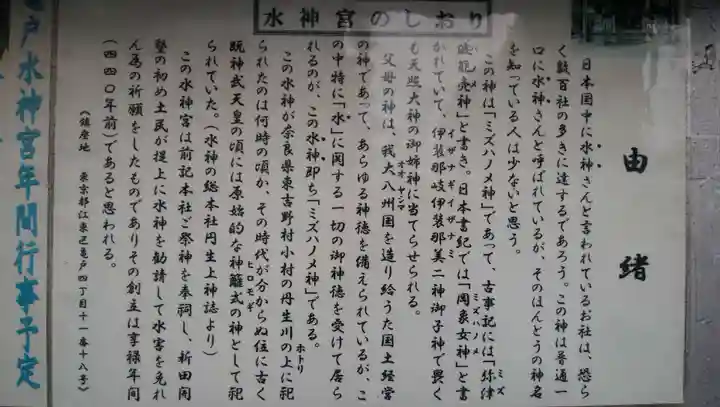 水神宮のしおり
由緒
日本国中に水神さんと言われているお社は、恐ら
く数百社の多きに達するであろう。この神は普通一
口に水神さんと呼ばれているが、そのほんとうの神名
を知っている人は少ないと思う。
この神は「ミズハノメ神」であって、古事記には「弥津
波能売神」と書き。日本書紀では「罔象女神」と書
かれていて、伊弉那岐伊弉那美二神御子神で畏く
も天照大神の御姉神に当てらせられる。
父母の神は、我大八州国を造り給うた国土経営
の神であって、あらゆる神徳を備えられているが、こ
の中特に「水」に関する一切の御神徳を受けて居ら
れるのが、この水神即ち「ミズハノメ神」である。
この水神が奈良県東吉野村小村の丹生川の上に祀
られたのは何時の頃か、その時代が分からぬ位に古く
既神武天皇の頃には原始的な神籬式の神として祀
られていた。(水神の総本社丹生上神誌より)
この水神宮は前記本社ご祭神を奉祠し、新田開
墾の初め土民が提上に水神を勧請して水害を免れ
ん為の祈願をしたものでありその創立は享禄年間
(四四〇年前)であると思われる。
(鎮座地 東京都江東区亀戸四丁目十一番十八号)
亀戸水神宮年間行事予定